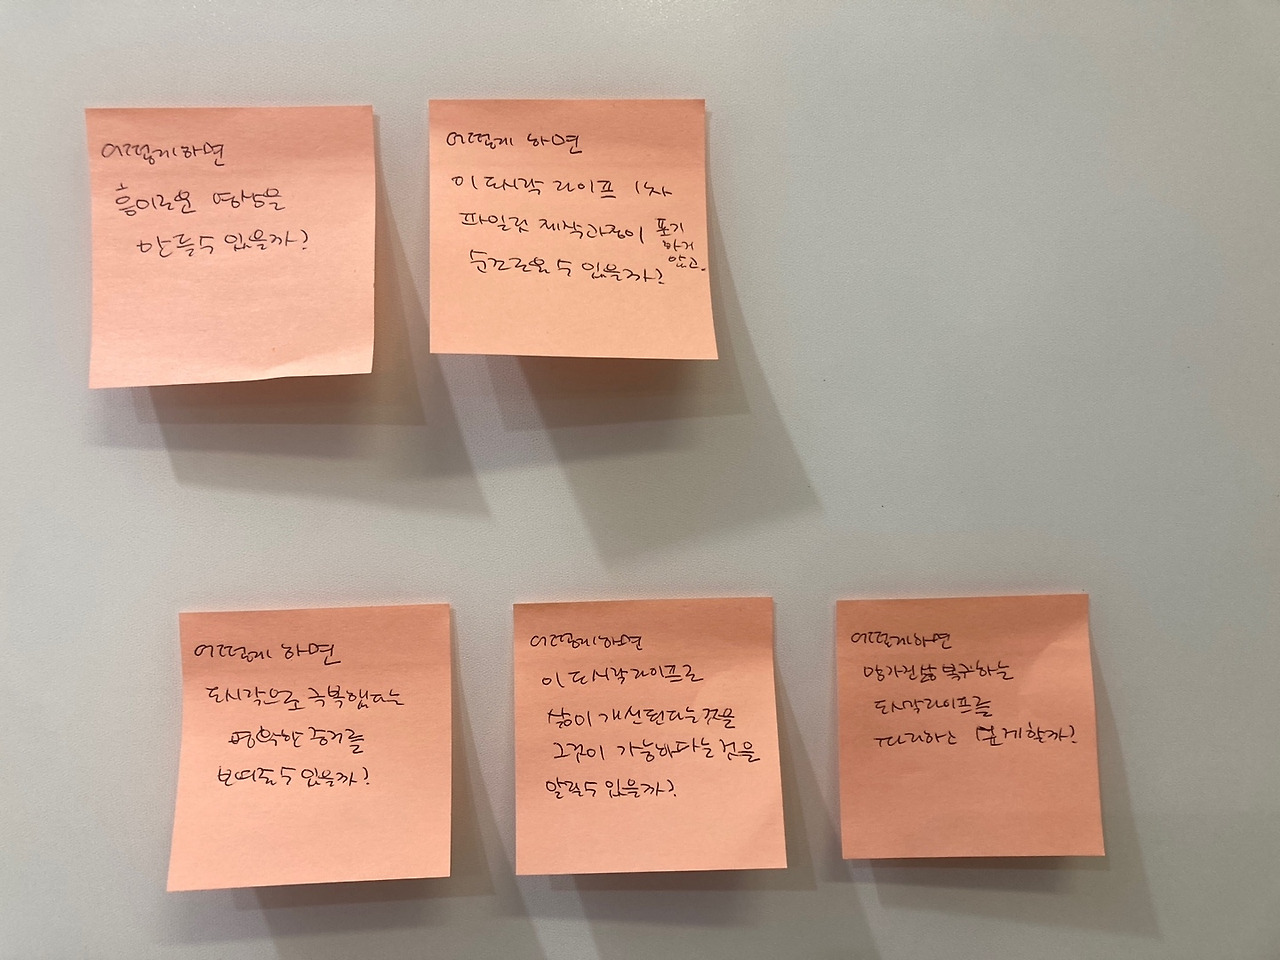 어떻게하면
흥미로운 영상을
만들수 있을까?
어떻게 하면
이 도시락 라이프 1차
파일럿 제작과정이 포기
하지
않고
순조로울 수 있을까?
어떻게 하면
도시락으로 극복했다는
명확한 증거를
보여줄 수 있을까?
어떻게하면
이 도시락라이프로
삶이 개선된다는것을
그것이 가능하다는 것을
알릴수 있을까?
어떻게하면
망가진 삶 복구하는
도시락라이프를
보게할까?